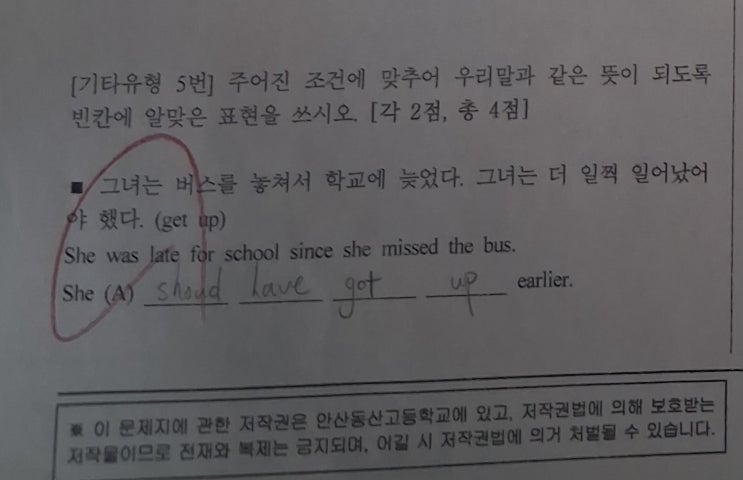 [기타유형 5번] 주어진 조건에 맞추어 우리말과 같은 뜻이 되도록
빈칸에 알맞은 표현을 쓰시오. [각 2점, 총 4점]
■ 그녀는 버스를 놓쳐서 학교에 늦었다. 그녀는 더 일찍 일어났어
야 했다. (get up)
She was late for school since she missed the bus.
She (A) shoud have got up earlier.
※ 이 문제지에 관한 저작권은 안산동산고등학교에 있고, 저작권법에 의해 보호받는
저작물이므로 전재와 복제는 금지되며, 어길 시 저작권법에 의거 처벌될 수 있습니다.